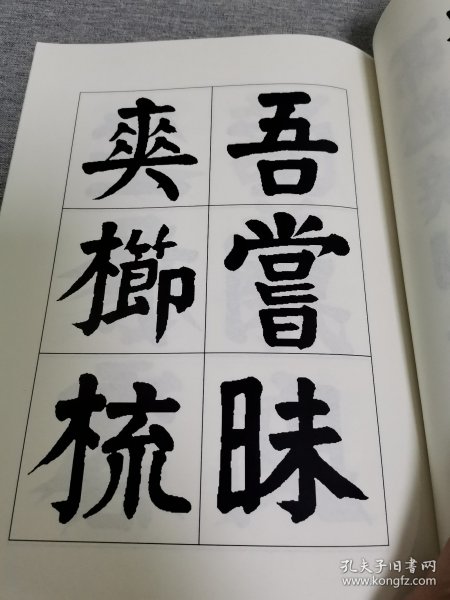 吾嘗昧
爽櫛梳
孔夫子旧书网
www.kongfz.com